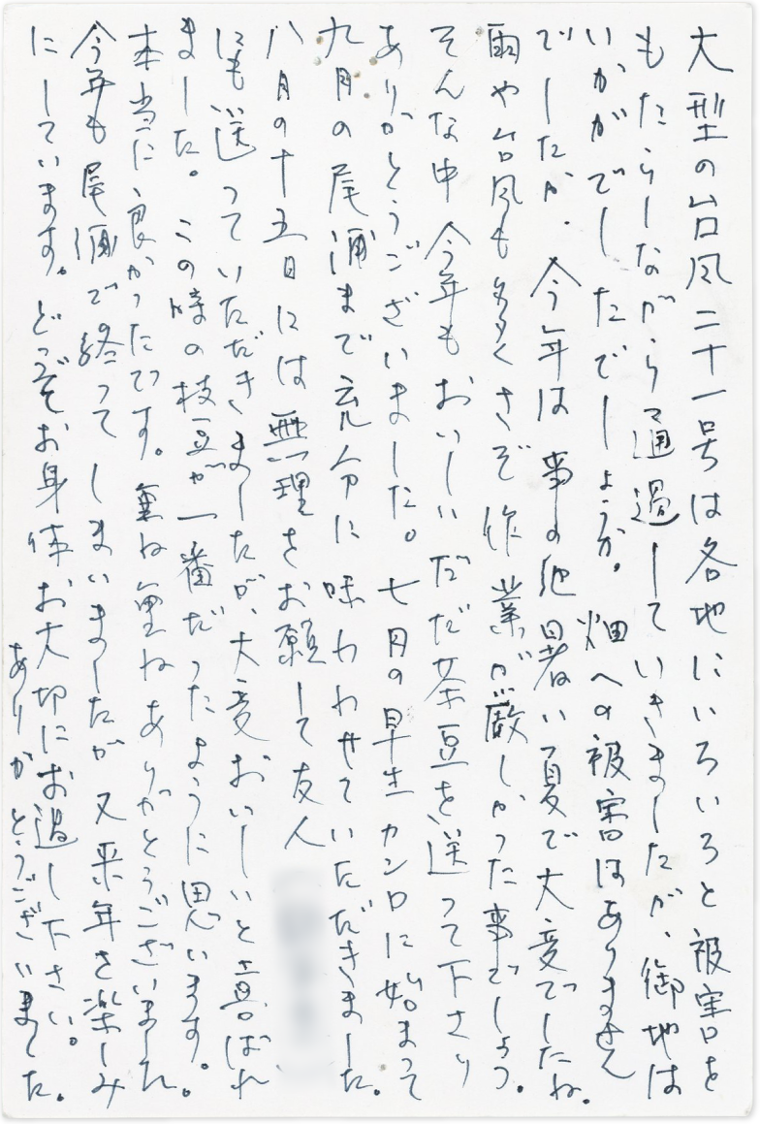 大型の台風二十一号は各地にいろいろと被害を
もたらしながら通過していきましたが、御地は
いかがでしたでしょうか。畑への被害はありません
でしたか.今年は事の他暑い夏で大変でしたね。
雨や台風も多くさぞ作業が厳しかった事でしょう。
そんな中今年もおいしいだだ茶豆を送って下さり
ありがとうございました。七月の早生カンロに始まって
九月の尾浦まで充分に味わわせていただきました。
八月の十五日には無理をお願して友人
にも送っていただきましたが、大変おいしいと喜ばれ
ました。この時の枝豆が一番だったように思います。
本当に良かったです。重ね重ねありがとうございました。
今年も尾浦で終ってしまいましたが又来年を楽しみ
にしています。どうぞお身体お大切にお過し下さい。
ありがとうございました。